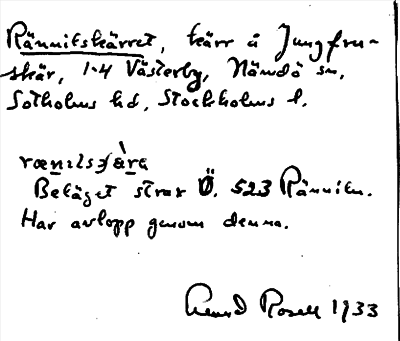 Rännilskärret, kärr å Jungfru-
skär, 1-4 Västerby, Nämdö sn,
Sotholms hd, Stockholms l.
rænɪls
Beläget strax Ö. 523 Ränniln.
Har avlopp genom denna.
Rosell 1933